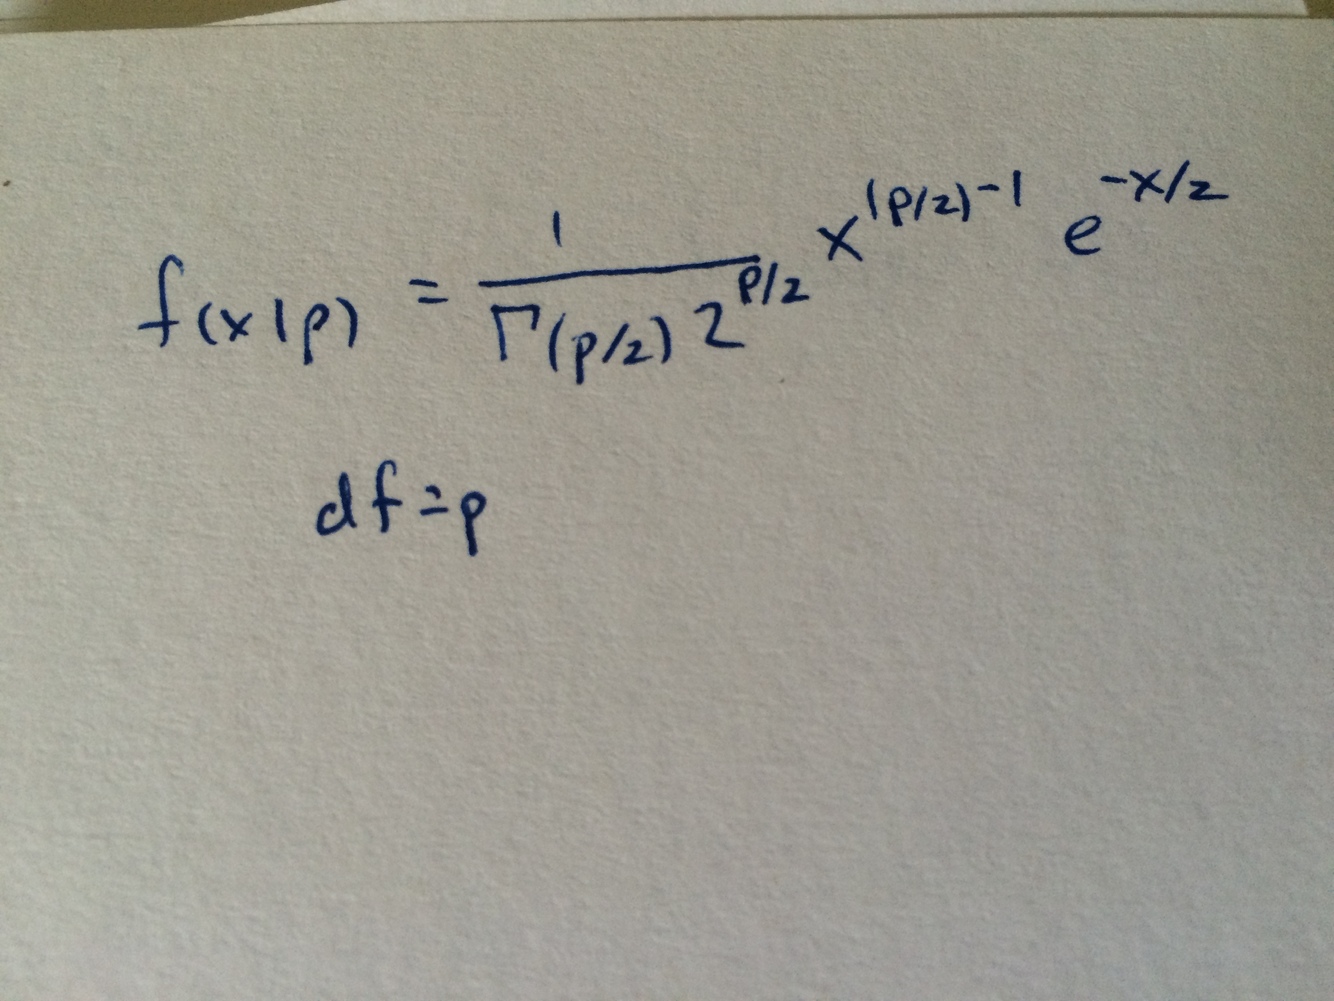 f(x|p) = 1 / Γ(p/2) 2^{p/2} x^{(p/2)-1} e^{-x/2}
df=p